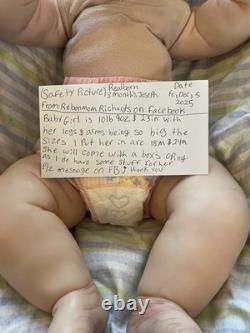 (Safety Picture) Realborn Date
3 months Joseph Fri, Dec, 5
2025
From Reborn mom Richards on Facebook
Baby Girl is 10lb 9oz & 23in with
her legs & arms being so big the
sizes I Put her in are 18m & 24m
She will come with a box opning
as I do have some stuff for her
Plz message on FB thank you